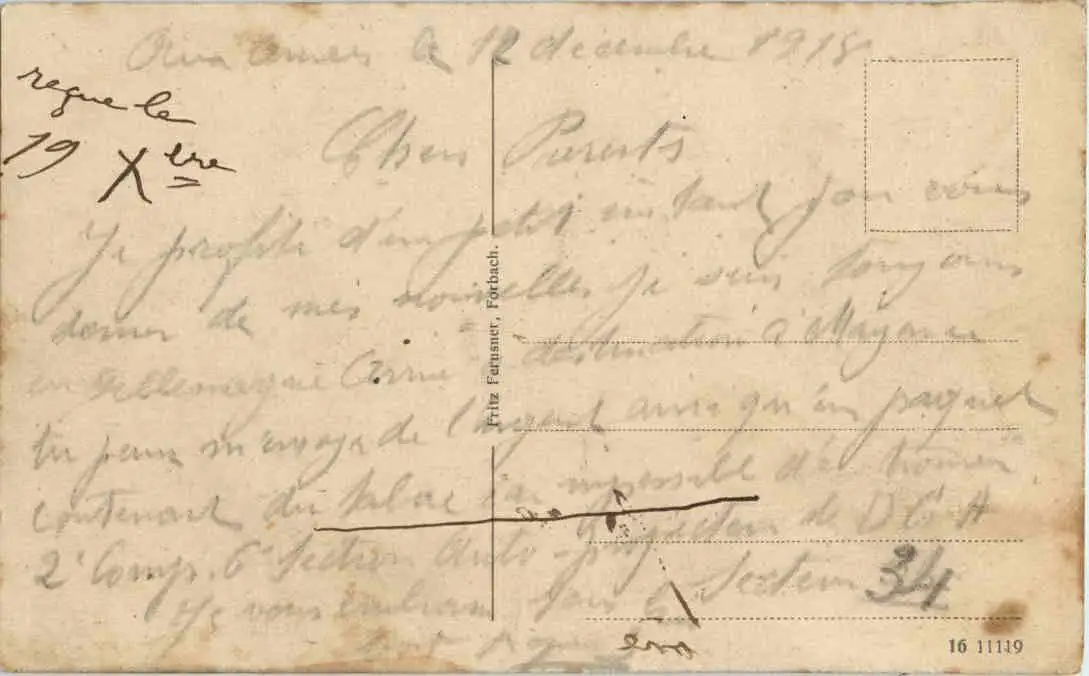 le 12 décembre 1918
reçue le
19 Xbre
Chers Parents
Je profite d'un petit instant pour vous
donner de mes nouvelles je suis toujours
en Allemagne destination à Mayence
tu peux m'envoyé de l'argent ainsi qu'un paquet
contenant du tabac car impossible d'en trouver
2e Comp. 6e Section Auto-projecteur de D C A
Secteur 34
Je vous embrasse
Fritz Ferusner, Forbach.
16 11119